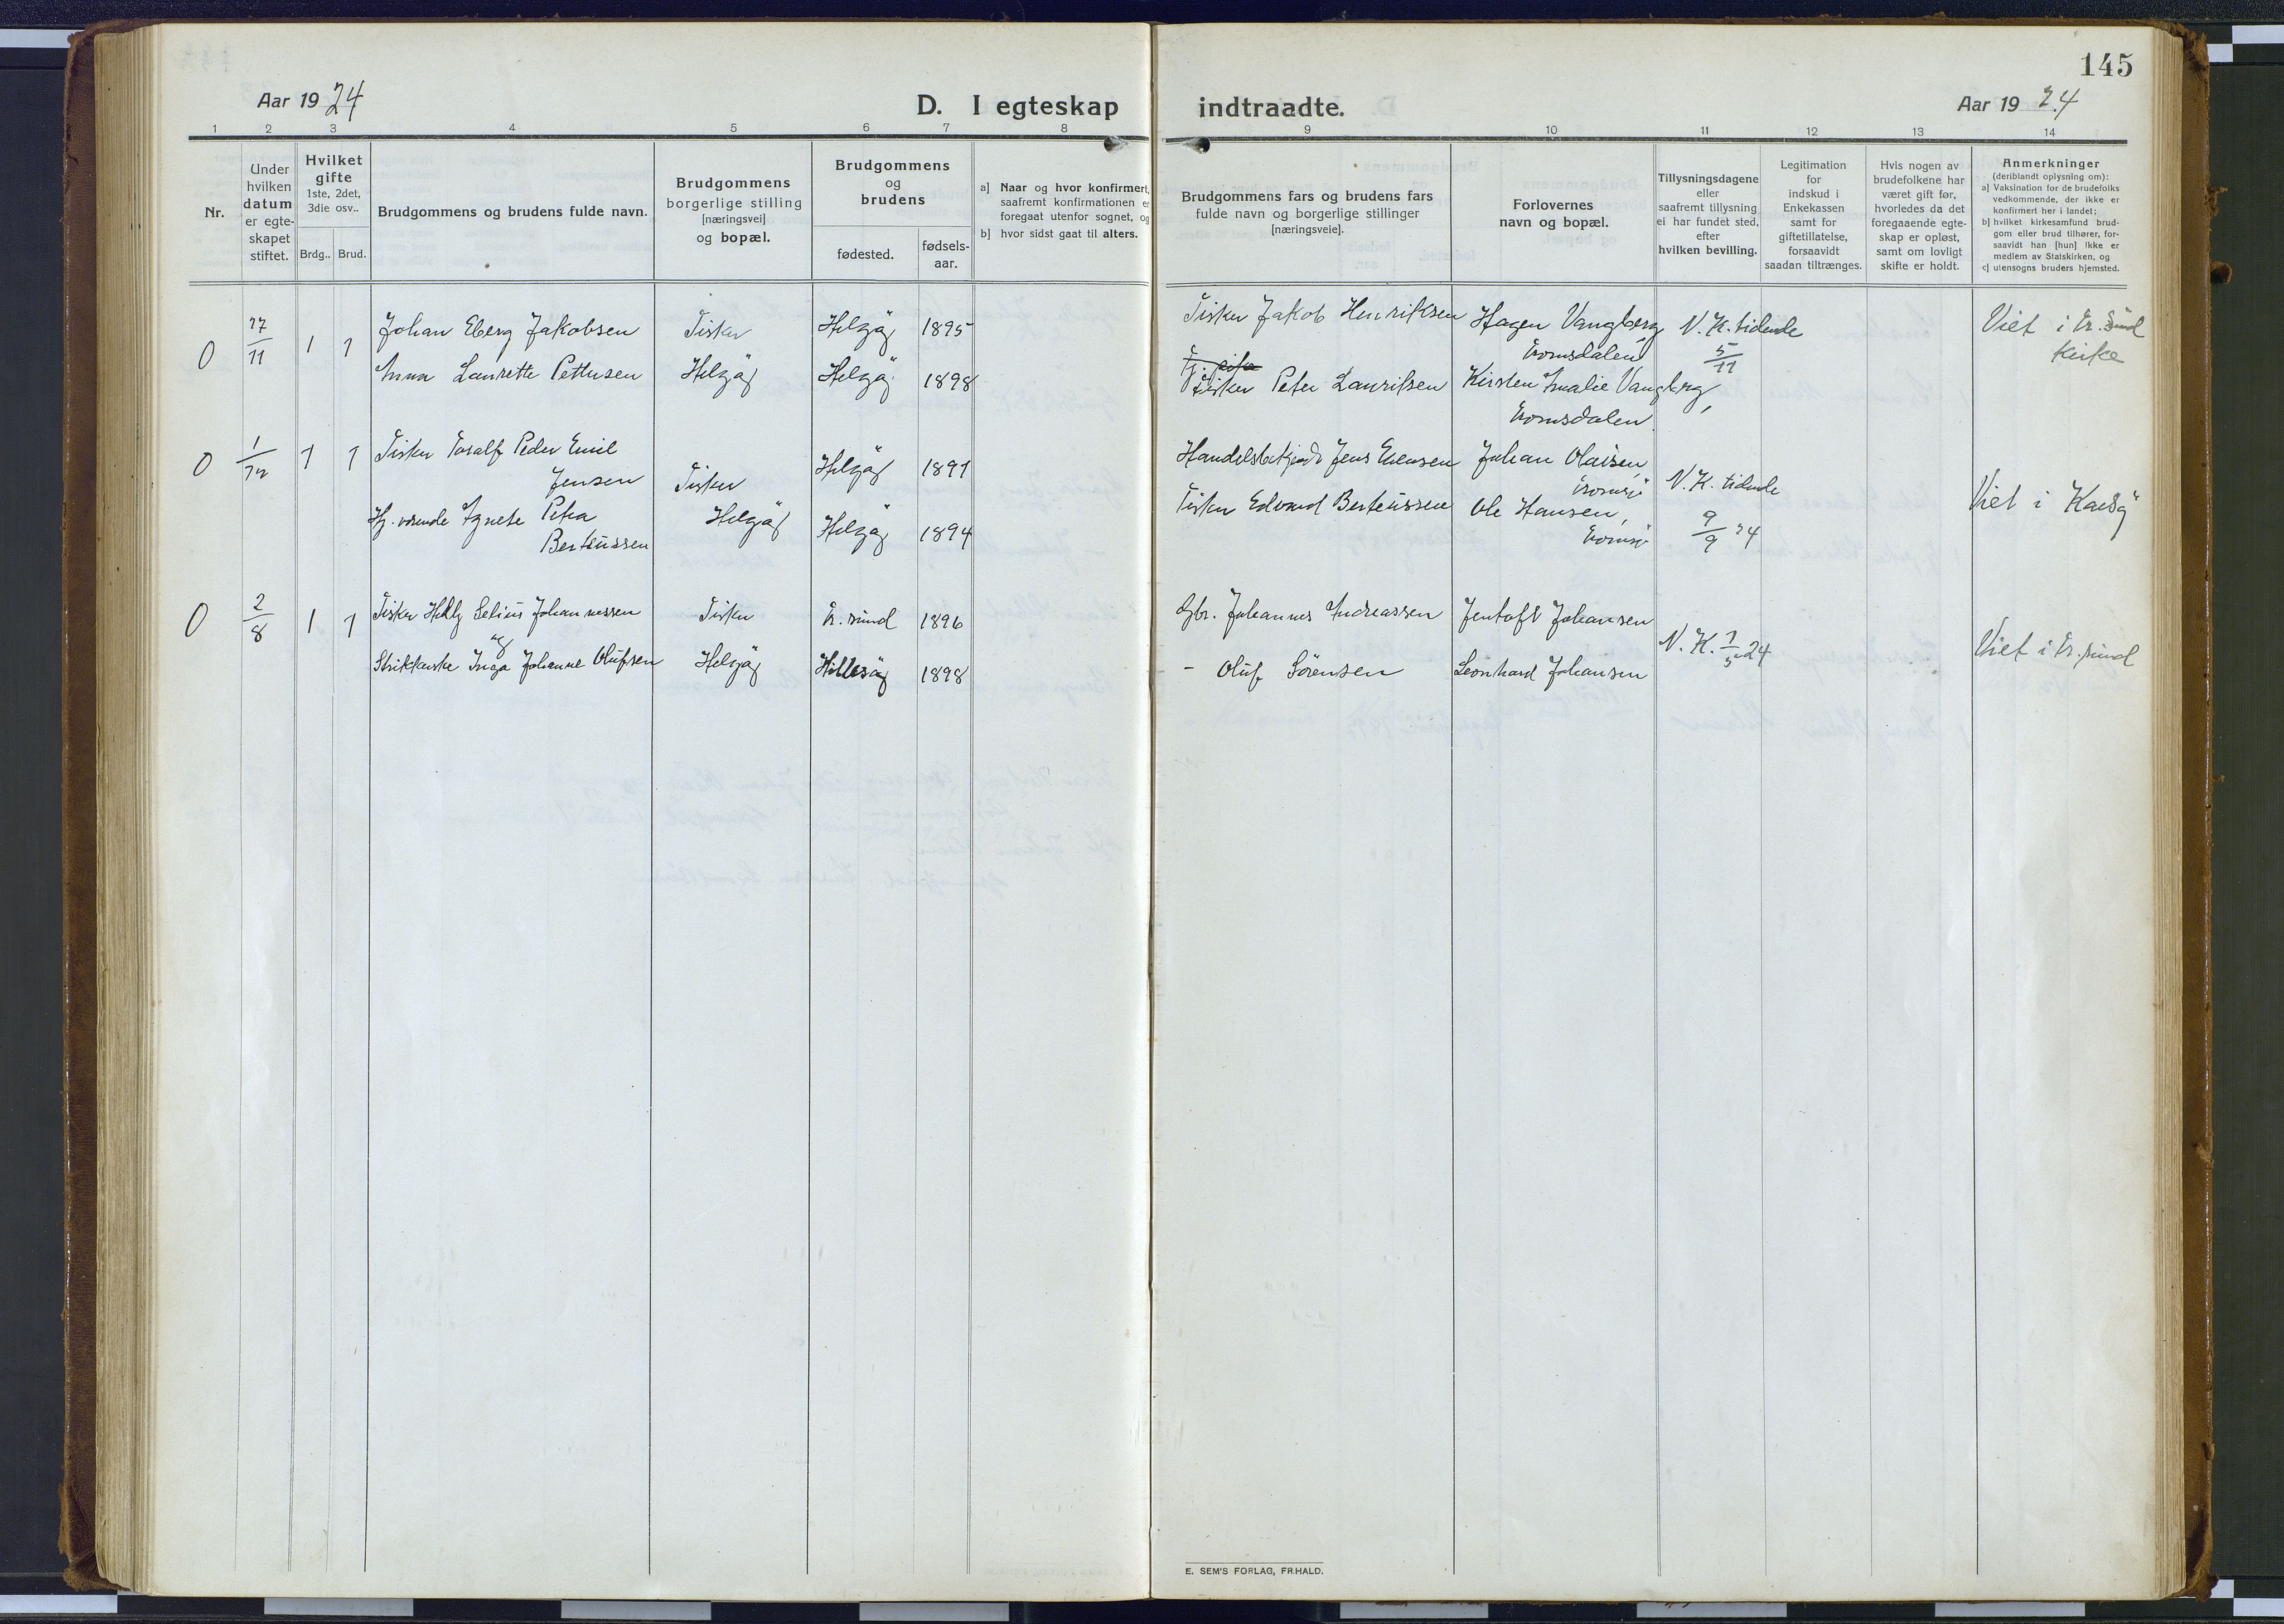 145
Aar 1924
D. I egteskap indtraadte.
Aar 1924
1 2 3 4 5 6 7 8 9 10 11 12 13 14
Nr.
Under
hvilken
datum
er egte-
skapet
stiftet.
Hvilket
gifte
1ste, 2det,
3die osv..
Brdg.. Brud.
Brudgommens og brudens fulde navn.
Brudgommens
borgerlige stilling
[næringsvei]
og bopæl.
Brudgommens
og
brudens
fødested.
fødsels-
aar.
a] Naar og hvor konfirmert,
saafremt konfirmationen er
foregaat utenfor sognet, og
b] hvor sidst gaat til alters.
Brudgommens fars og brudens fars
fulde navn og borgerlige stillinger
[næringsveie].
Forlovernes
navn og bopæl.
Tillysningsdagene
eller
saafremt tillysning
ei har fundet sted,
efter
hvilken bevilling.
Legitimation
for
indskud i
Enkekassen
samt for
giftetillatelse,
forsaavidt
saadan tiltrænges.
Hvis nogen av
brudefolkene har
været gift før,
hvorledes da det
foregaaende egte-
skap er opløst,
samt om lovligt
skifte er holdt.
Anmerkninger
(deriblandt oplysning om):
a] Vaksination for de brudefolks
vedkommende, der ikke er
konfirmert her i landet;
b] hvilket kirkesamfund brud-
gom eller brud tilhører, for-
saavidt han [hun] ikke er
medlem av Statskirken, og
c] utensogns bruders hjemsted.
0 17/11 1 1 Johan Eberg Jakobsen Fisker Helgøy 1895 Fisker Jakob Henriksen Hagen Vangberg, N. K. tidende Viet i Tr. sund
Tromsdalen 5/11 kirke
Anna Laurette Pettersen Helgøy Helgøy 1898 Fisker Peter Lauritsen Kirsten Amalie Vangberg,
Tromsdalen
0 1/12 1 1 Fisker Toralf Peder Emil
Jensen Fisker Helgøy 1891 Jens Evensen Johan Olaisen, Tromsø N. K. tidende Viet i Karlsøy
Hj. værende Agnete Petra
Berteussen Helgøy Helgøy 1894 Fisker Edvard Berteussen Ole Hansen, Tromsø 9/9 24
0 2/8 1 1 Fisker Selius Johannessen Fisker Tr. sund 1896 Gbr. Johannes Andreassen Jentoft Johansen
og N. K. 24 Viet i Tr. sund
Strikkerske Inga Johanne Olufsen Helgøy Hillesøy 1898 - Oluf Sørensen Leonhard Johansen
E. SEM'S FORLAG, FR.HALD.